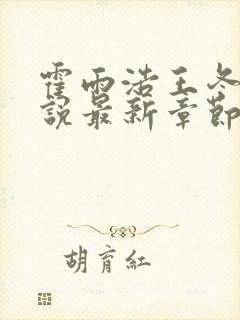 霍雨浩王冬
說最新章節
胡育紅